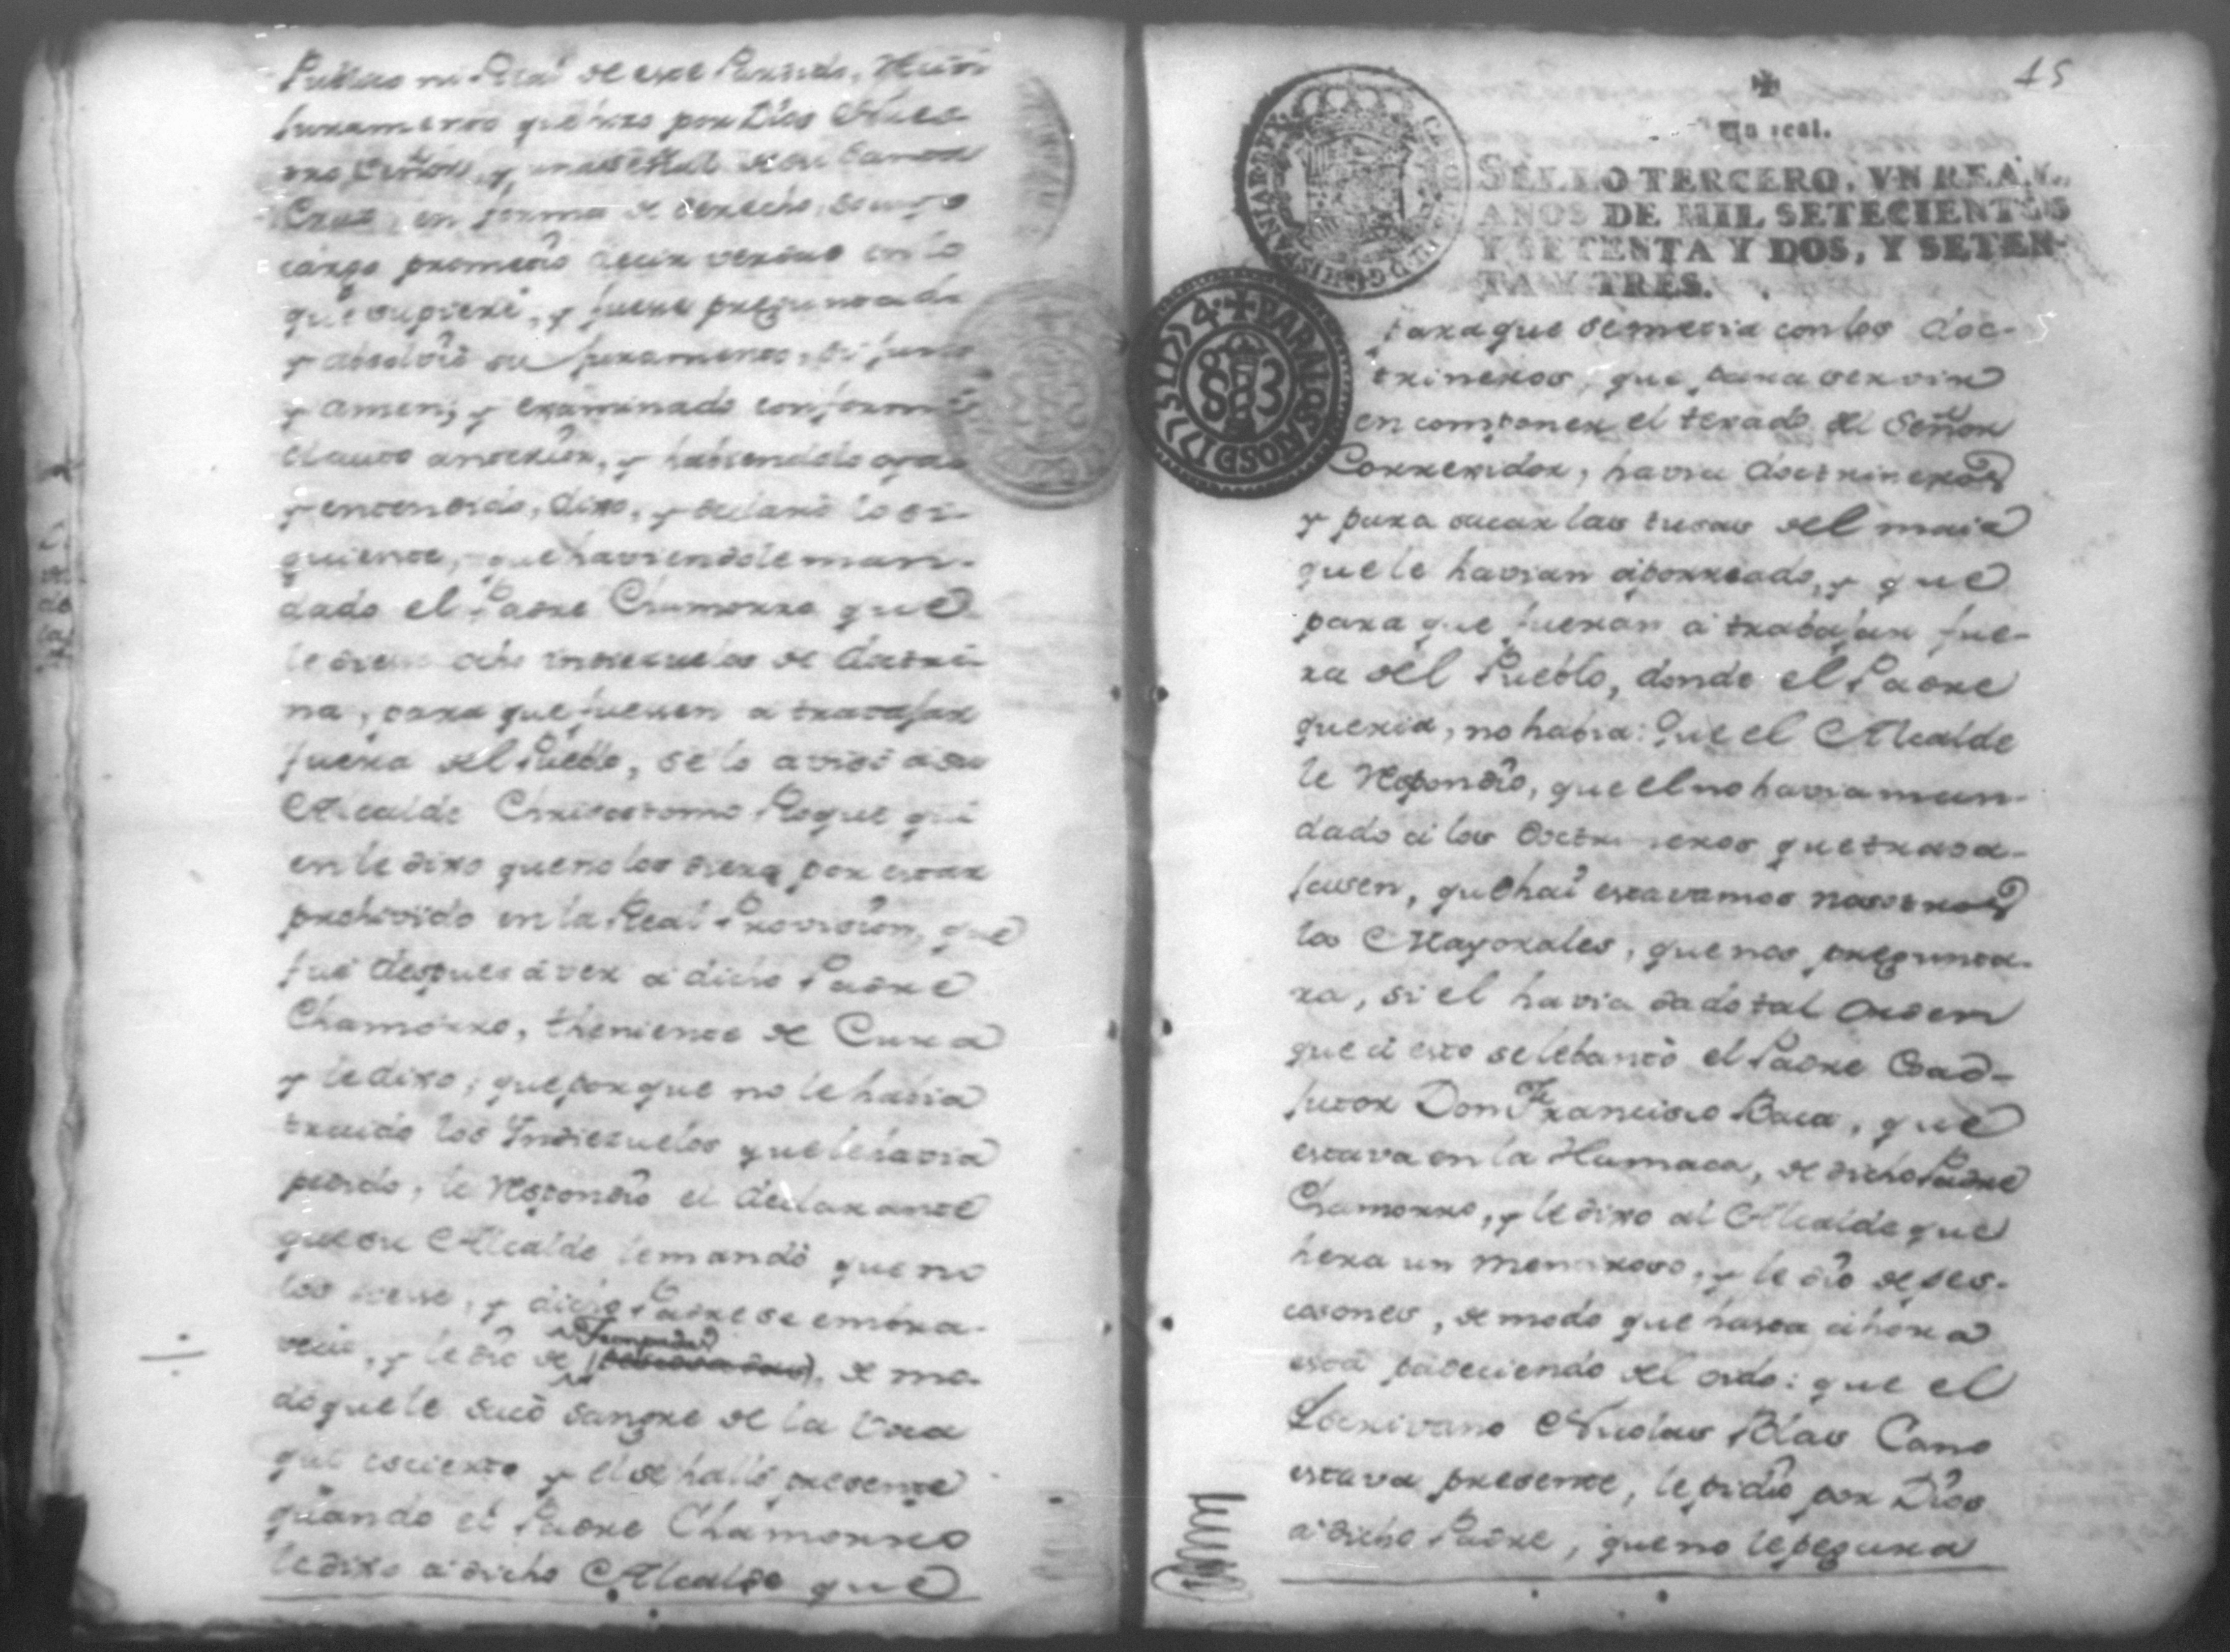 Publico ni Real de este Partido, Recivi
juramento que hizo por Dios Nues-
tro Señor, y una señal de su Santa
Cruz en forma de derecho, so cuyo
cargo prometio decir verdad en lo
que supiere, y fuere preguntado
y absolvio su juramento, si juro
y amen; y examinado conforme
el auto anterior, y haviendolo oydo
y entendido, dixo, y declaro lo si-
guiente, que haviendole man-
dado el Padre Chamorro que
le diese ocho indiezuelos de doctri-
na, para que fuesen a trabajar
fuera del Pueblo, se lo avisó a su
Alcalde Chrisostomo Roque qui
en le dixo que no los diera por estar
prohivido en la Real Provision, que
fue despues a ver a dicho Padre
Chamorro, theniente de Cura
y le dixo, que porque no le havia
traido los Yndiezuelos que le havia
pedido, le Respondio el declarante
que su Alcalde le mandó que no
los diesse, y dicho Padre se embra-
vecio, y le dio de de mo-
do que le sacó sangre de la boca
que es cierto y el se halló presente
quando el Padre Chamorro
le dixo a dicho Alcalde que
15
Un real.
SELLO TERCERO, VN REAL,
AÑOS DE MIL SETECIENTOS
Y SETENTA Y DOS, Y SETEN-
TA Y TRES.
CAROLUS III D.G. HISPANIAR. REX
PARA LOS AÑOS D 1775 Y 1774
para que se metia con los doc-
trineros, que para servir
en componer el texado del Señor
Correxidor, havia doctrineros
y para sacar las tusas del maiz
que le havian aporreado, y que
para que fueran a trabajar fue-
ra del Pueblo, donde el Padre
queria, no habia: Que el Alcalde
le Respondio, que el no havia man-
dado a los doctrineros que traba-
jasen, que hai estavamos nosotros
los Mayorales, que nos pregunta-
ra, si el havia dado tal orden
que a esto se lebantó el Padre Coad-
jutor Don Francisco Baca, que
estava en la Hamaca, de dicho Padre
Chamorro, y le dixo al Alcalde que
hera un mentiroso, y le dio de pes-
cosones, de modo que hasta ahora
está padeciendo del oido: que el
Escrivano Nicolas Blas Cano
estava presente, le pidio por Dios
a dicho Padre, que no le pegara